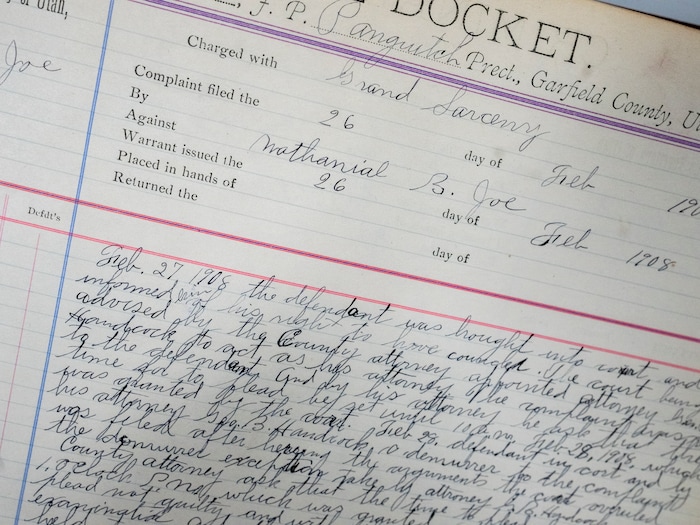 y of Utah,
DOCKET.
F. P. Panguitch Prect., Garfield County, U
Joe
Charged with Grand Larceny
Complaint filed the 26 day of Feb 190
By
Against Nathanial B. Joe
Warrant issued the 26 day of Feb 1908
Placed in hands of
Returned the day of
Defdt's
Feb. 27, 1908 the defendant was bought into court and
informed of his right to have councel. The court being
advised by the County attorney appointed attorney
Handcock to act as his attorney the complaint was
to the defendant and by his attorney he ask that
time for to plead be set until 10 a.m. Feb 28, 1908, which
was granted by the court. Feb 28, defendant in cort and by
his attorney B. Handcock demurrer to the complaint
was filed after hearing the arguments the court overruled
the demurrer exception take by attorney
County attorney ask that the time to
1, o clock P. m. which was granted
plead not guilty and
examination
held